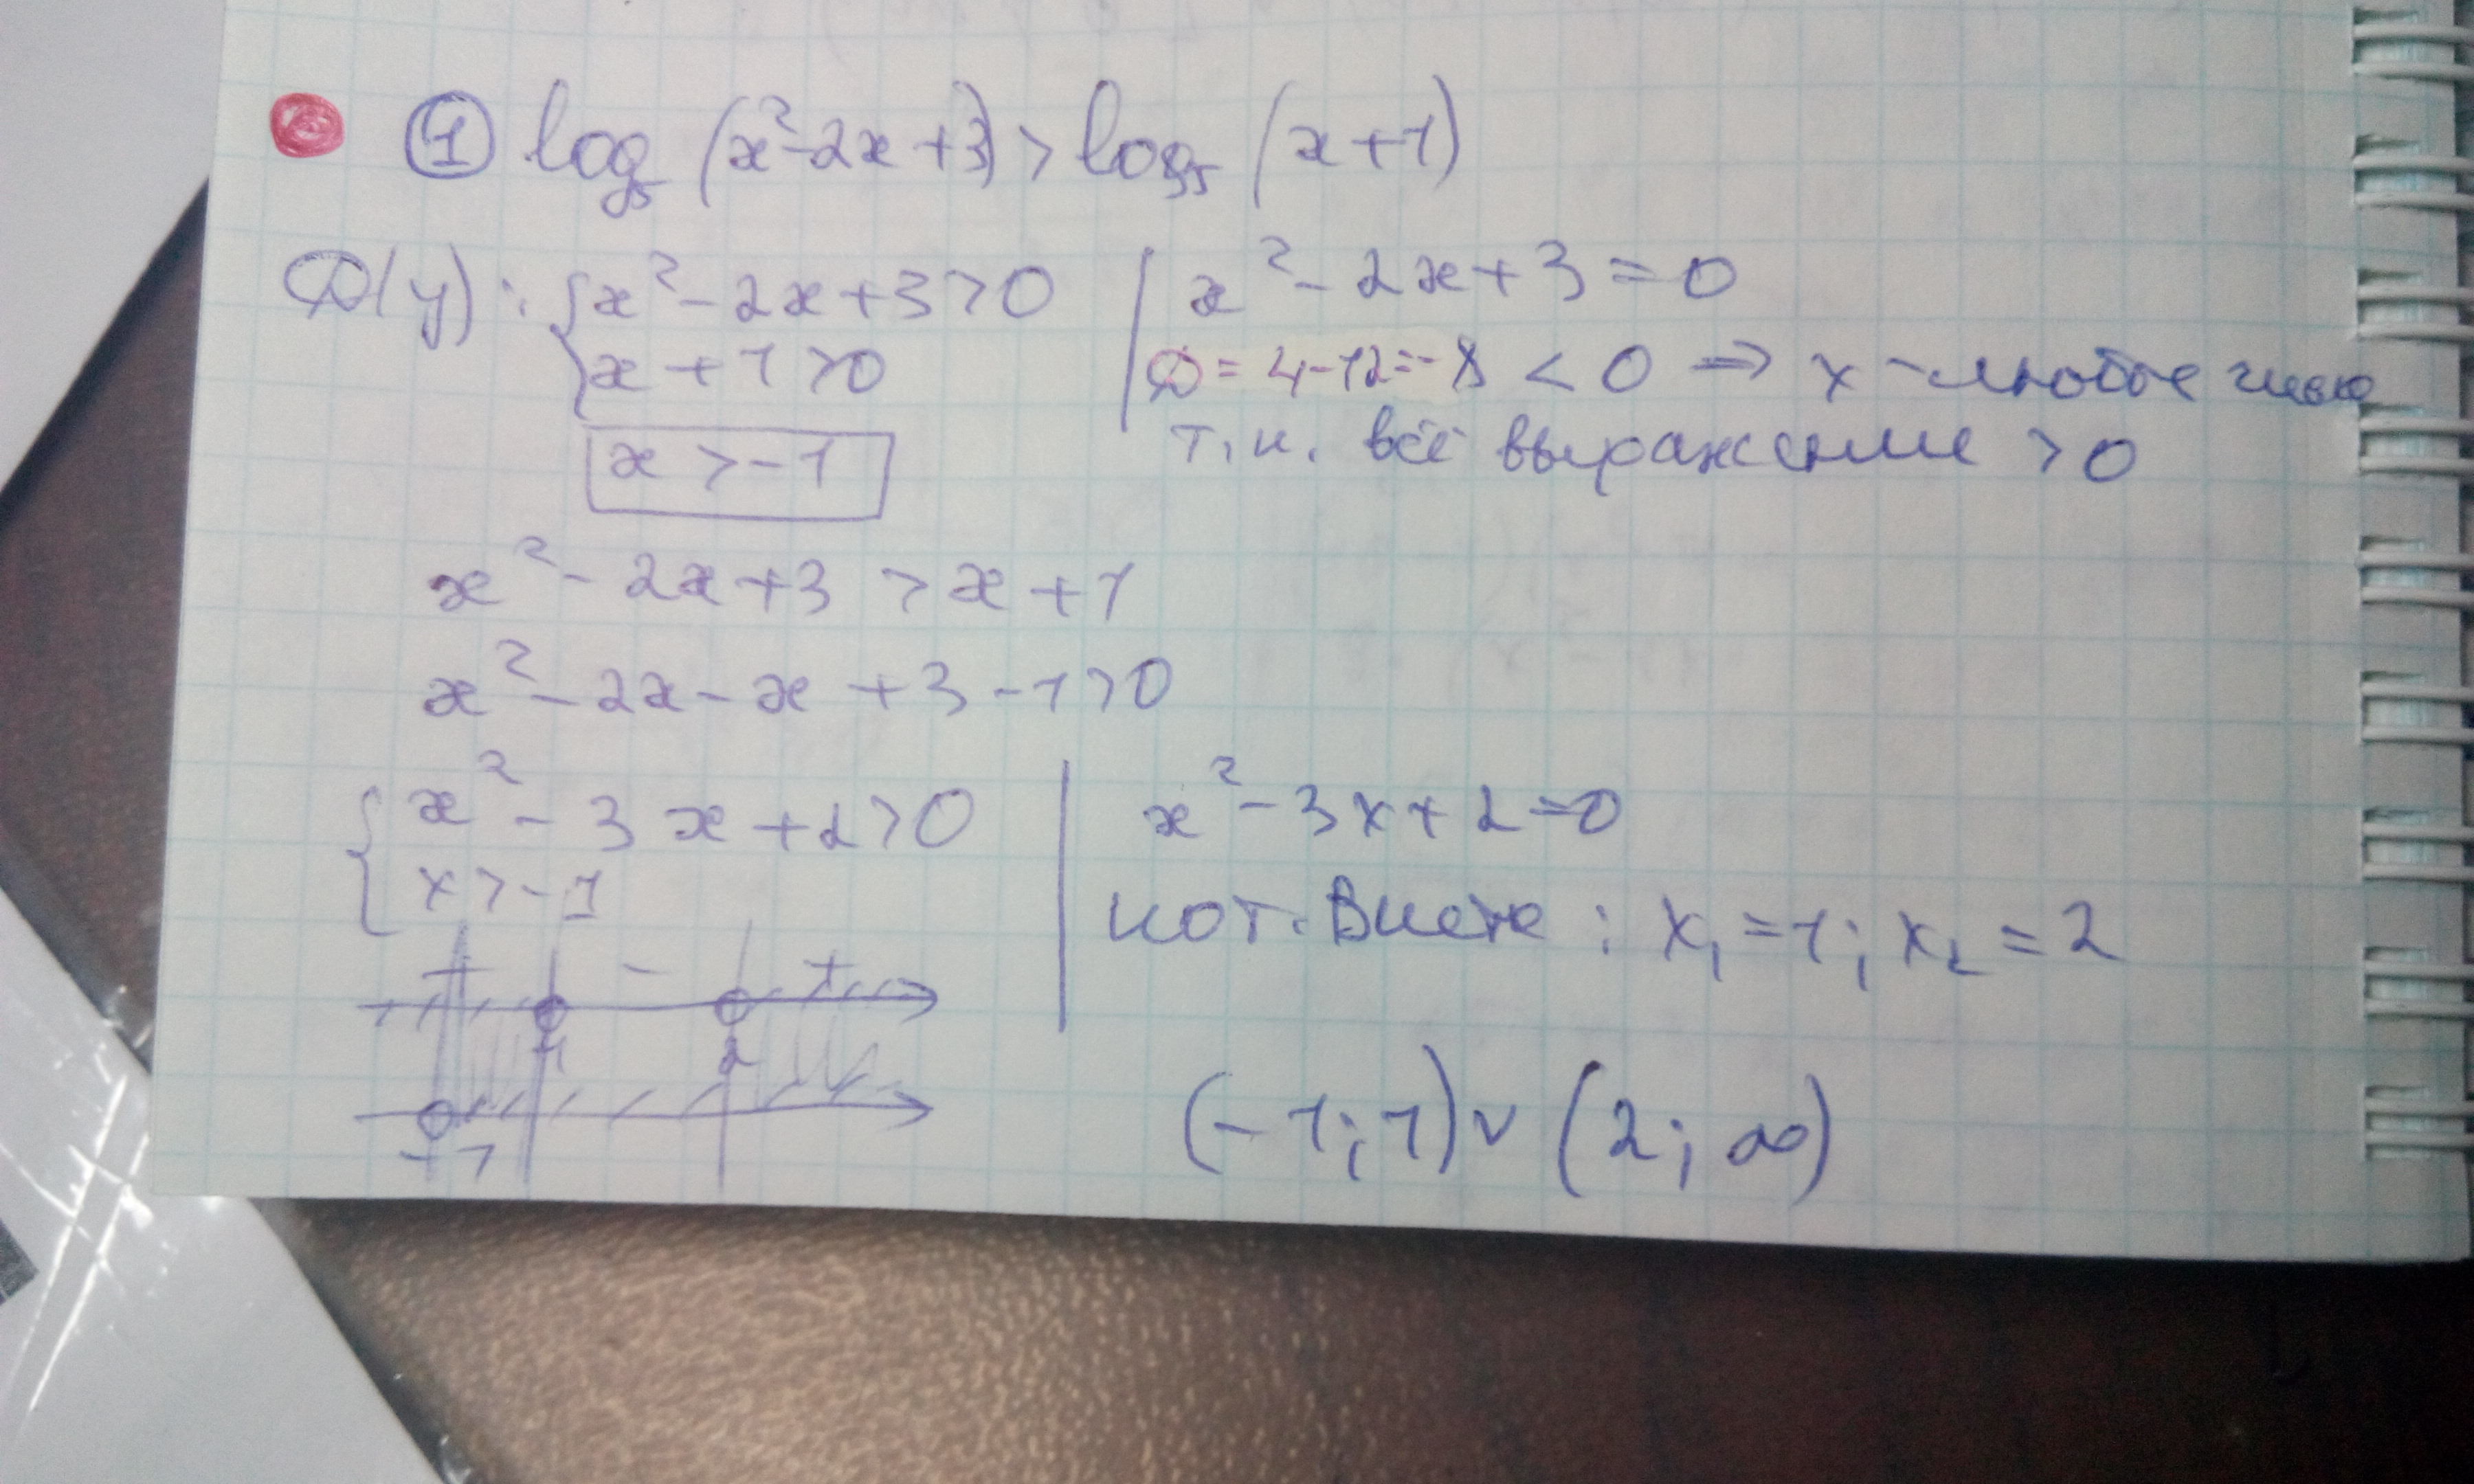 ① log₅ (x²-2x+3) > log₅ (x+1)
D(y): { x²-2x+3>0 | x²-2x+3=0
x+1>0 | D=4-12=-8 < 0 ⇒ x - любое число
x > -1 т.к. всё выражение > 0
x²-2x+3 > x+1
x²-2x-x+3-1>0
{ x²-3x+2>0 | x²-3x+2=0
x>-1 | по т. Виета: x₁=1; x₂=2
+ - +
1 2
-1
(-1;1)∨(2;∞)